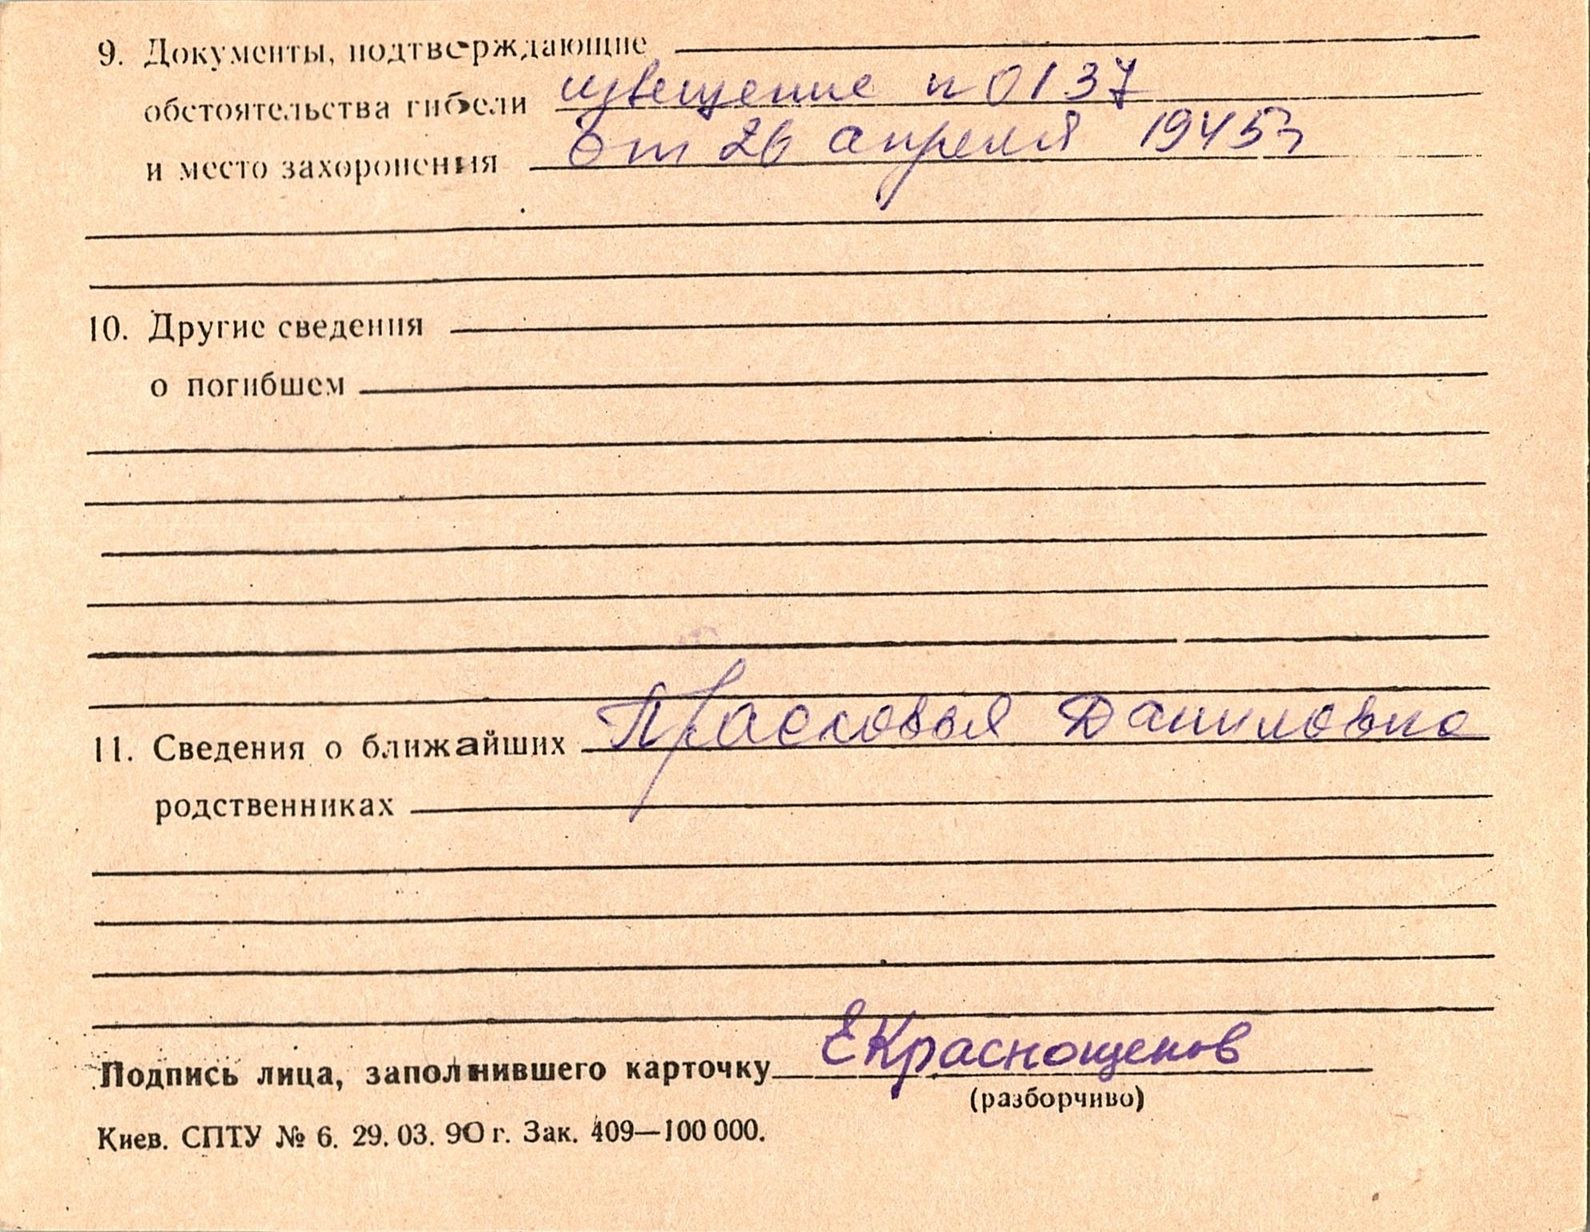 9. Документы, подтверждающие
обстоятельства гибели извещение n 0137
и место захоронения от 26 апреля 1945г
10. Другие сведения
о погибшем
11. Сведения о ближайших Прасковья Даниловна
родственниках
Подпись лица, заполнившего карточку ЕКраснощеков
(разборчиво)
Киев. СПТУ № 6. 29.03.90 г. Зак. 409—100 000.